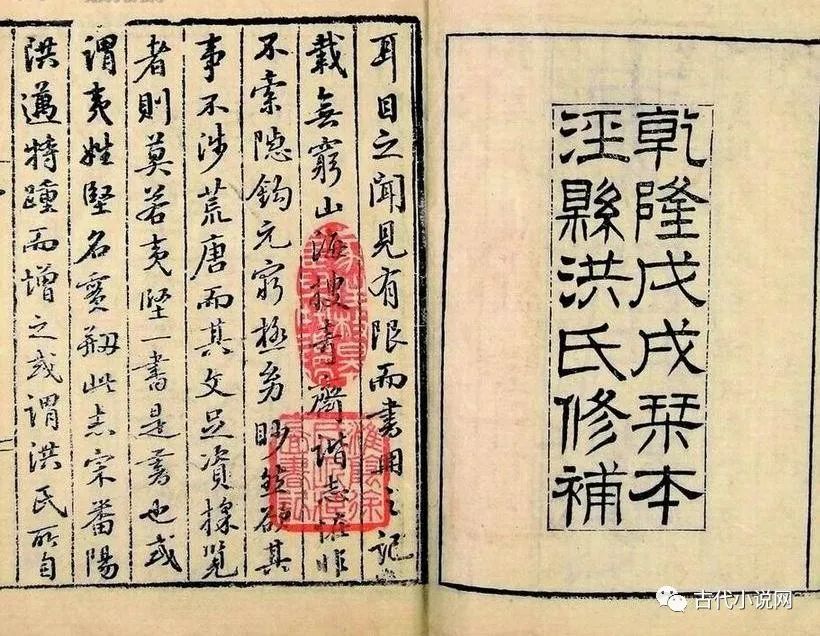 乾隆戊戌栞本
涇縣洪氏修補
耳目之聞見有限而書冊之記
載無窮山海搜奇齊諧志恠非
不索隐鈎元窮極眇然欲其
事不涉荒唐而其文足資採覧
者則莫若夷堅一書是書也或
謂夷姓堅名實剏此志宋番陽
洪邁特踵而增之或謂洪氏所自
古代小说网